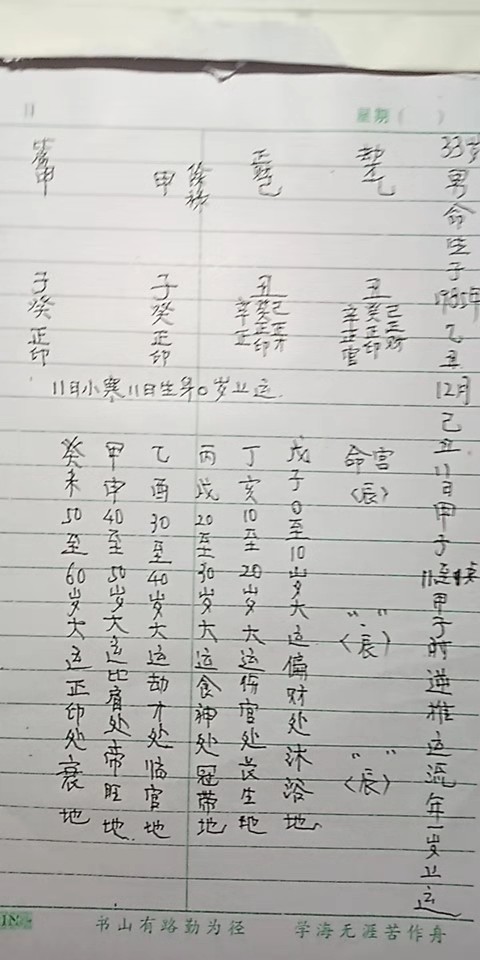 星期（ ）
33岁男命生于1985年乙丑12月己丑11日甲子11至1点甲子时逆推运流年一岁上运
劫才
乙
丑
己正财
癸正印
辛正官
正财
己
丑
己正才
癸正印
辛正
甲
子
癸
正印
甲
子
癸
正印
11日小寒11日生算0岁上运.
命宫〈辰〉
" "
〈辰〉
" "
〈辰〉
戊子0至10岁大运偏财处沐浴地
丁亥10至20岁大运伤官处长生地
丙戌20至30岁大运食神处冠带地
乙酉30至40岁大运劫才处临官地
甲申40至50岁大运比肩处帝旺地
癸未50至60岁大运正印处衰地
书山有路勤为径 学海无涯苦作舟